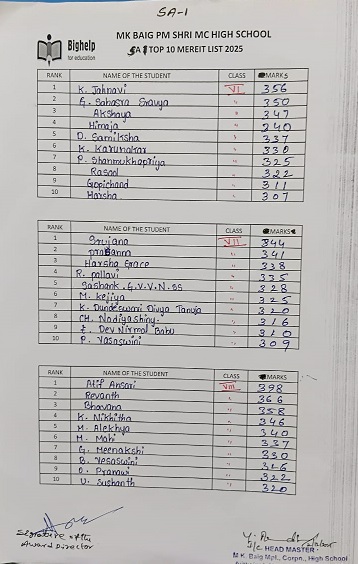 SA-1
MK BAIG PM SHRI MC HIGH SCHOOL
Bighelp
for education
SA 1 TOP 10 MEREIT LIST 2025
RANK NAME OF THE STUDENT CLASS MARKS
1 K. Jahnavi VI 356
2 G. Sahasra Sravya " 350
3 Akshaya " 347
4 Himaja " 340
5 D. Samiksha " 337
6 K. Karunakar " 330
7 P. Shanmukhapriya " 325
8 Rasool " 322
9 Gopichand " 311
10 Harsha " 307
RANK NAME OF THE STUDENT CLASS MARKS
1 Srujana VII 344
2 Prasanna " 341
3 Harsha Grace " 338
4 R. pallavi " 335
5 Sashank. G.V.V.N.SS " 328
6 M. Kejiya " 325
7 K. Dundeswari Divya Tanuja " 320
8 CH. Nadiya Shiny. " 316
9 Dev Nirmal Babu " 310
10 P. Yasaswini " 309
RANK NAME OF THE STUDENT CLASS MARKS
1 Atif Ansari VIII 398
2 Revanth " 366
3 Bhavana " 358
4 K. Nikhitha " 346
5 M. Alekhya " 340
6 M. Mahi " 337
7 G. Meenakshi " 330
8 B. Yesaswini " 326
9 D. Pranavi " 322
10 U. Sushanth " 320
Signature of the
Award Director
I/c HEAD MASTER
M K. Baig Mpl., Corpn., High School